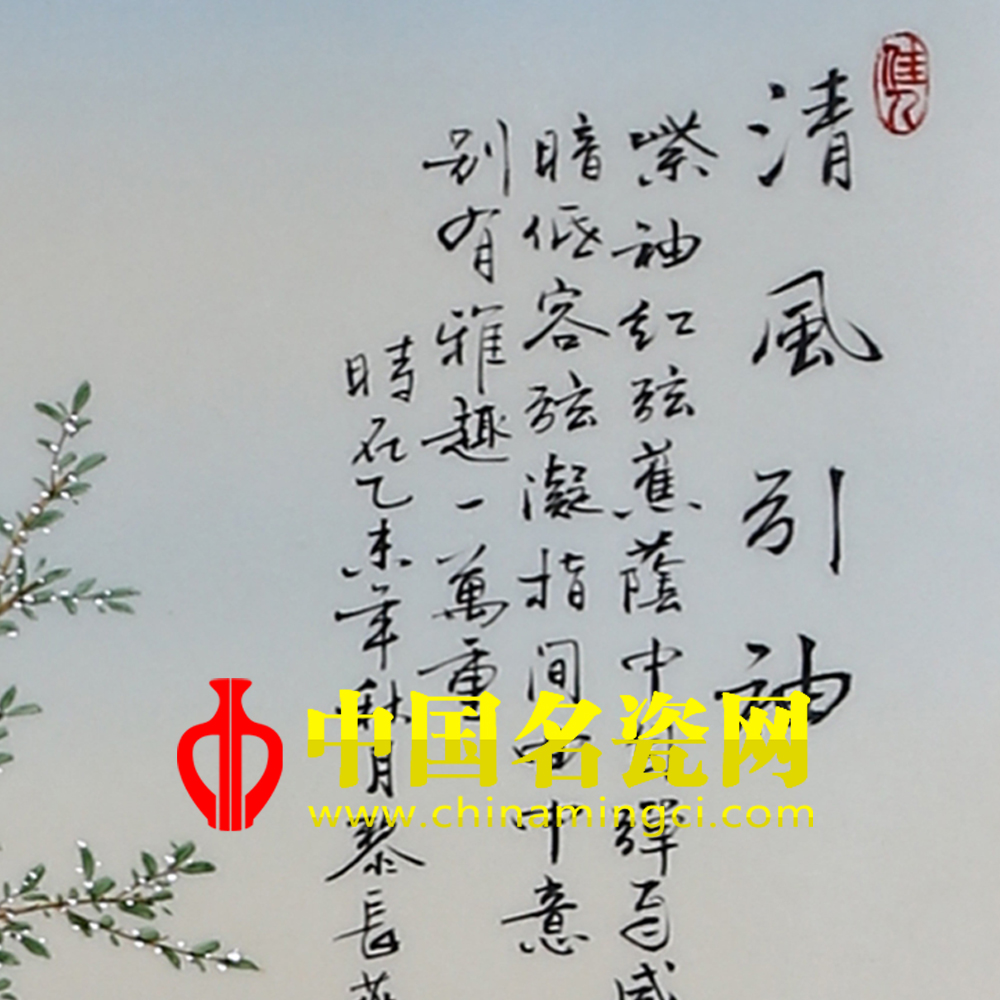 清風引袖
紫袖红弦蕉蔭中 彈
暗低容弦凝指间 中意
别有雅趣一萬重
時在乙未年秋月
中国名瓷网
www.chinamingci.com